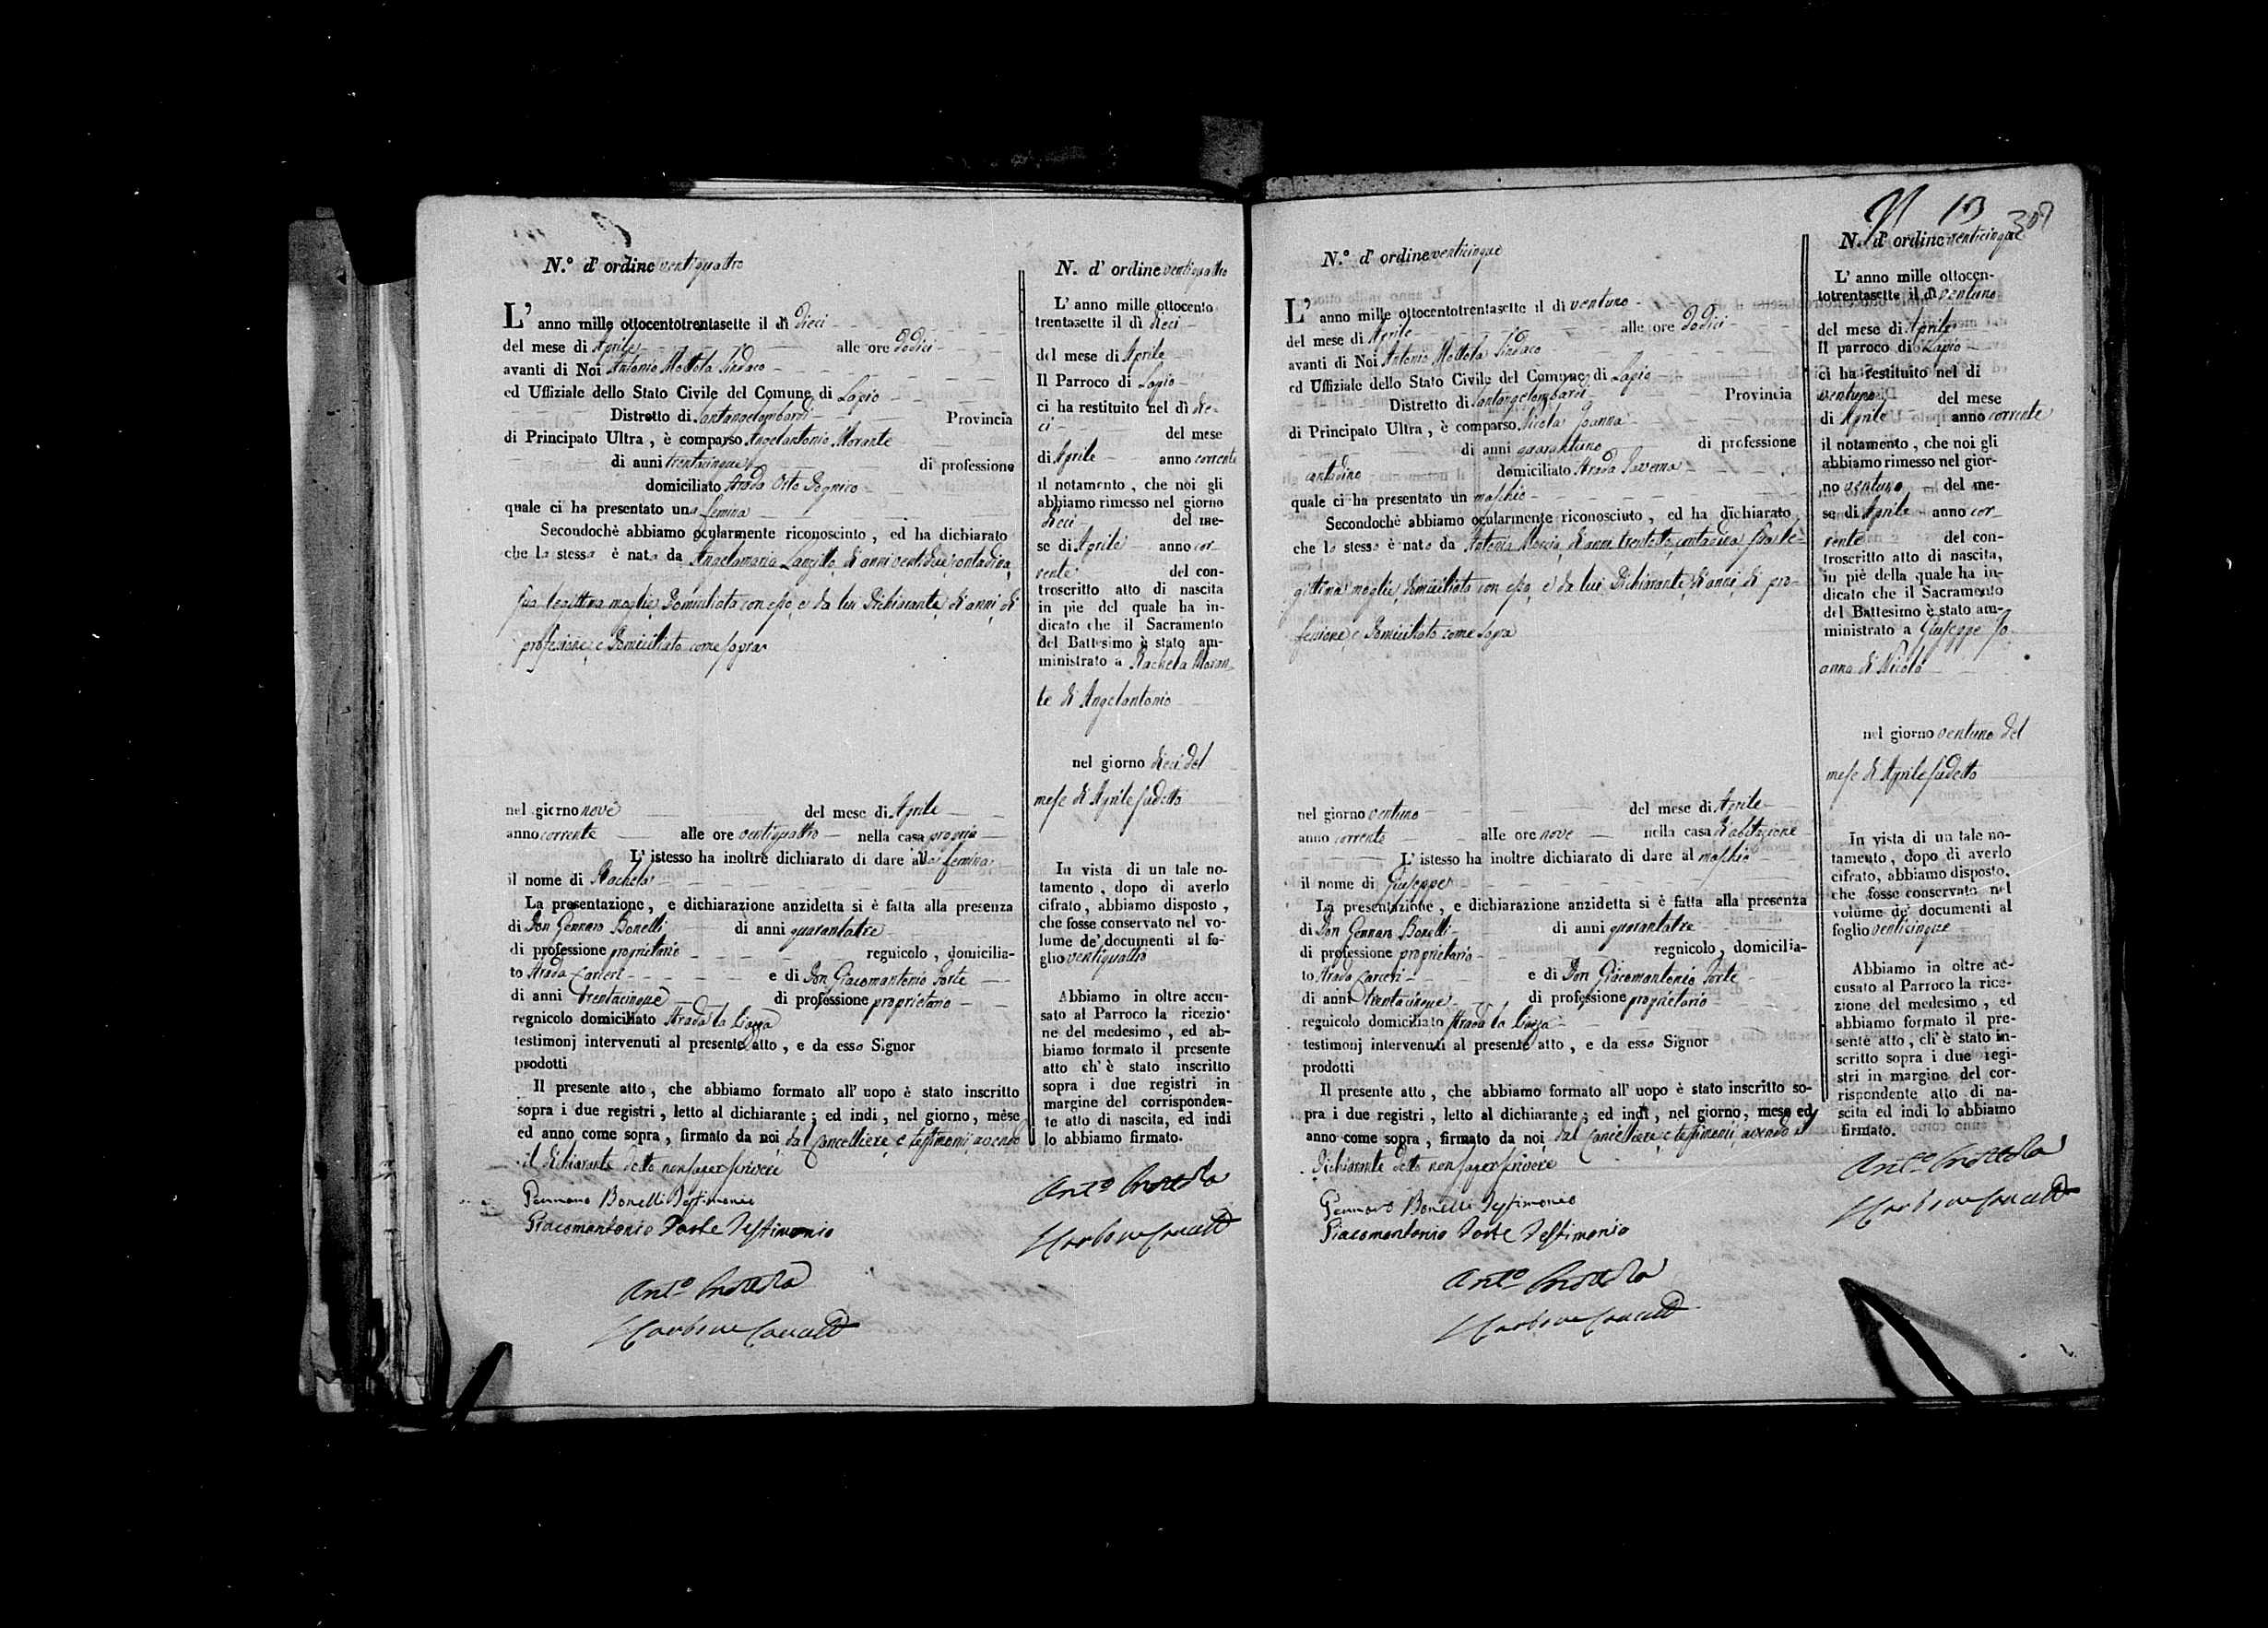 N.º d' ordine ventiquattro
L' anno mille ottocentotrentasette il dì dieci
del mese di Aprile alle ore dodici
avanti di Noi Antonio Mottola Sindaco
ed Uffiziale dello Stato Civile del Comune di Lapio
Distretto di Santangelombardi Provincia
di Principato Ultra , è comparso Angelantonio Morante
di anni trentacinque di professione
domiciliato Strada Orto
quale ci ha presentato una femina
Secondochè abbiamo ocularmente riconosciuto , ed ha dichiarato
che la stessa è nata da Angelamaria di anni ventidue, contadina,
sua legittima moglie, domiciliata con esso, e da lui Dichiarante, di anni, di
professione, e domiciliato come sopra
nel giorno nove del mese di Aprile
anno corrente alle ore ventiquattro nella casa propria
L' istesso ha inoltre dichiarato di dare alla femina
il nome di Rachela
La presentazione , e dichiarazione anzidetta si è fatta alla presenza
di Don Gennaro Bonelli di anni quarantatre
di professione proprietario regnicolo , domicilia-
to Strada Carceri e di Don Giacomantonio Forte
di anni trentacinque di professione proprietario
regnicolo domiciliato Strada la Piazza
testimonj intervenuti al presente atto , e da esso Signor
prodotti
Il presente atto , che abbiamo formato all' uopo è stato inscritto
sopra i due registri , letto al dichiarante ; ed indi , nel giorno , mese
ed anno come sopra , firmato da noi dal Cancelliere, e testimonii avendo
il dichiarante detto non saper scrivere
Gennaro Bonelli Testimonio
Giacomantonio Forte Testimonio
Ant.º Mottola
N. d' ordine ventiquattro
L' anno mille ottocento
trentasette il dì dieci
del mese di Aprile
Il Parroco di Lapio
ci ha restituito nel dì die-
ci del mese
di Aprile anno corrente
il notamento , che noi gli
abbiamo rimesso nel giorno
dieci del me-
se di Aprile anno cor-
rente del con-
troscritto atto di nascita
in piè del quale ha in-
dicato che il Sacramento
del Battesimo è stato am-
ministrato a Rachela Moran-
te di Angelantonio
nel giorno dieci del
mese di Aprile sudetto
In vista di un tale no-
tamento , dopo di averlo
cifrato , abbiamo disposto ,
che fosse conservato nel vo-
lume de' documenti al fo-
glio ventiquattro
Abbiamo in oltre accu-
sato al Parroco la ricezio-
ne del medesimo , ed ab-
biamo formato il presente
atto ch' è stato inscritto
sopra i due registri in
margine del corrisponden-
te atto di nascita, ed indi
lo abbiamo firmato.
Ant.º Mottola
N.º d' ordine venticinque
L' anno mille ottocentotrentasette il dì ventuno
del mese di Aprile alle ore dodici
avanti di Noi Antonio Mottola Sindaco
ed Uffiziale dello Stato Civile del Comune di Lapio
Distretto di Santangelombardi Provincia
di Principato Ultra , è comparso Nicola Joanna
di anni quarantuno di professione
contadino domiciliato Strada Taverna
quale ci ha presentato un maschio
Secondochè abbiamo ocularmente riconosciuto , ed ha dichiarato
che lo stesso è nato da Antonia di anni trentotto, contadina, sua le-
gittima moglie, domiciliata con esso, e da lui Dichiarante, di anni, di pro-
fessione, e domiciliato come sopra
nel giorno ventuno del mese di Aprile
anno corrente alle ore nove nella casa d'abitazione
L' istesso ha inoltre dichiarato di dare al maschio
il nome di Giuseppe
La presentazione , e dichiarazione anzidetta si è fatta alla presenza
di Don Gennaro Bonelli di anni quarantatre
di professione proprietario regnicolo , domicilia-
to Strada Carceri e di Don Giacomantonio Forte
di anni trentacinque di professione proprietario
regnicolo domiciliato Strada la Piazza
testimonj intervenuti al presente atto , e da esso Signor
prodotti
Il presente atto , che abbiamo formato all' uopo è stato inscritto so-
pra i due registri , letto al dichiarante ; ed indi , nel giorno , mese ed
anno come sopra , firmato da noi dal Cancelliere, e testimonii avendo il
dichiarante detto non saper scrivere
Gennaro Bonelli Testimonio
Giacomantonio Forte Testimonio
Ant.º Mottola
N 13
307
N. d' ordine venticinque
L' anno mille ottocen-
totrentasette il dì ventuno
del mese di Aprile
Il parroco di Lapio
ci ha restituito nel dì
ventuno del mese
di Aprile anno corrente
il notamento , che noi gli
abbiamo rimesso nel gior-
no ventuno del me-
se di Aprile anno cor-
rente del con-
troscritto atto di nascita,
in piè della quale ha in-
dicato che il Sacramento
del Battesimo è stato am-
ministrato a Giuseppe Jo-
anna di Nicola
nel giorno ventuno del
mese di Aprile sudetto
In vista di un tale no-
tamento , dopo di averlo
cifrato , abbiamo disposto,
che fosse conservato nel
volume de' documenti al
foglio venticinque
Abbiamo in oltre ac-
cusato al Parroco la rice-
zione del medesimo , ed
abbiamo formato il pre-
sente atto , ch' è stato in-
scritto sopra i due regi-
stri in margine del cor-
rispondente atto di na-
scita ed indi lo abbiamo
firmato.
Ant.º Mottola